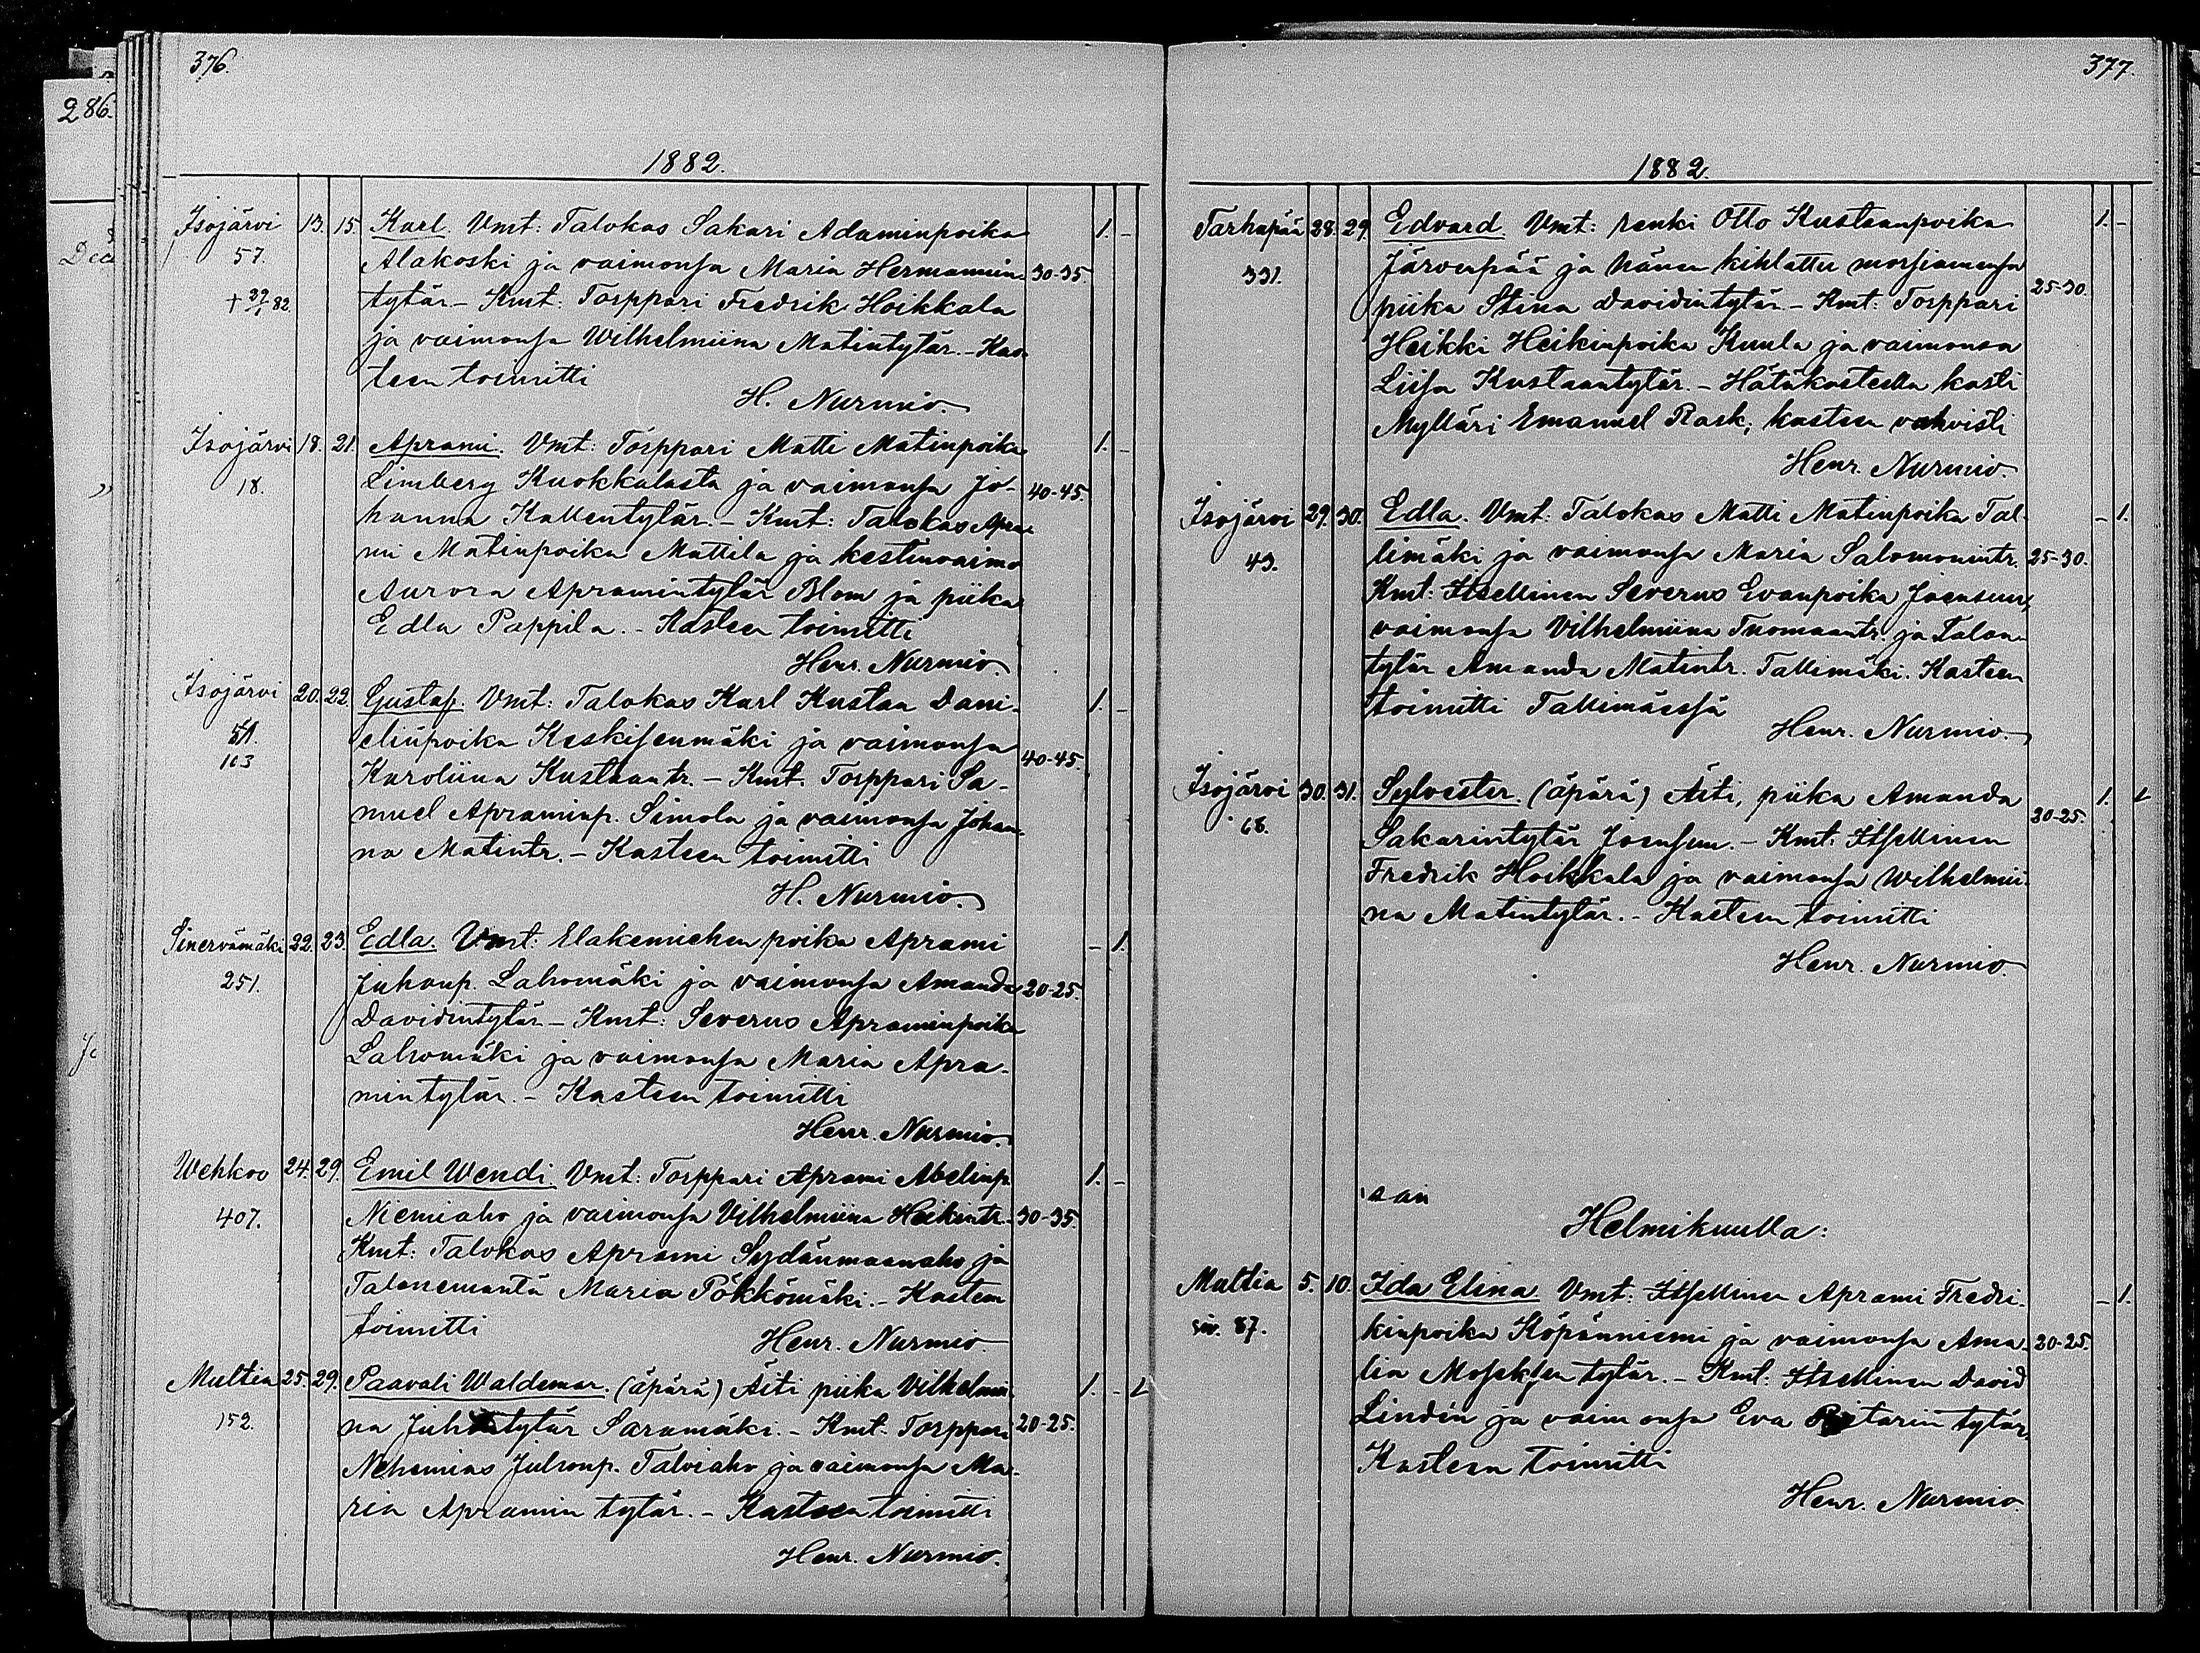 376.
286.
1882.
Isojärvi 13. 15. Karl. Vmt: Talokas Sakari Adaminpoika 1. -
57. Alakoski ja vaimonsa Maria Hermannin- 30-35.
tytär - Kmt: Torppari Fredrik Hoikkala
ja vaimonsa Wilhelmiina Matintytär. - Kas-
teen toimitti
H. Nurmio.
Isojärvi 18. 21. Aprami. Vmt: Torppari Matti Matinpoika 1. -
18. Limberg Kuokkalasta ja vaimonsa Jo- 40-45.
hanna Kallentytär. - Kmt: Talokas Apra-
mi Matinpoika Mattila ja kestinvaimo
Aurora Apramintytär Blom ja piika
Edla Pappila. - Kasteen toimitti
Henr. Nurmio.
Isojärvi 20. 22. Gustaf. Vmt: Talokas Karl Kustaa Dani- 1. -
elinpoika Keskisenmäki ja vaimonsa
103 Karoliina Kustaantr. - Kmt. Torppari Sa- 40-45.
muel Apraminp. Simola ja vaimonsa Johan-
na Matintr. - Kasteen toimitti
H. Nurmio.
Sinervämäki 22. 23. Edla. Vmt: Elakemiehen poika Aprami - 1.
251. Juhonp. Lahomäki ja vaimonsa Amanda 20-25.
Davidintytär - Kmt: Severus Apraminpoika
Lahomäki ja vaimonsa Maria Apra-
mintytär. - Kasteen toimitti
Henr. Nurmio.
Wehkoo 24. 29. Emil Wendi. Vmt: Torppari Aprami Abelinp. 1. -
407. Niemiaho ja vaimonsa Vilhelmiina Heikintr. 30-35.
Kmt: Talokas Aprami Sydänmaanaho ja
Talonemäntä Maria Pökkömäki. - Kasteen
toimitti
Henr. Nurmio.
Multia 25. 29. Paavali Waldemar. (äpärä) Äiti piika Vilhelmii- 1. -
152. na Juhontytär Saramäki. - Kmt. Torppari 20-25.
Nehemias Juhonp. Talviaho ja vaimonsa Ma-
ria Apramin tytär. - Kasteen toimitti
Henr. Nurmio.
377.
1882.
Tarhapää 28. 29. Edvard. Vmt: renki Otto Kustaanpoika 1. -
331. Järvenpää ja hänen kihlattu morsiamensa
piika Stina Davidintytär - Kmt: Torppari 25-30.
Heikki Heikinpoika Kuula ja vaimonsa
Liisa Kustaantytär. - Hätäkasteella kasti
Mylläri Emanuel Rask, kasteen vahvisti
Henr. Nurmio.
Isojärvi 29. 30. Edla. Vmt: Talokas Matti Matinpoika Tal- - 1.
43. limäki ja vaimonsa Maria Salomonintr. 25-30.
Kmt: Itsellinen Severus Evanpoika Joensuu,
vaimonsa Vilhelmiina Tuomaantr. ja Talon-
tytär Amanda Matintr. Tallimäki. Kasteen
toimitti Tallimäessä
Henr. Nurmio.
Isojärvi 30. 31. Sylvester. (äpärä) Äiti, piika Amanda 1.
68. Sakarintytär Joensuu. - Kmt: Itsellinen 20-25.
Fredrik Hoikkala ja vaimonsa Wilhelmii-
na Matintytär. - Kasteen toimitti
Henr. Nurmio.
Helmikuulla:
Multia 5. 10. Ida Elina Vmt: Itsellinen Aprami Fredri- - 1.
siv. 87. kinpoika Köpänniemi ja vaimonsa Ama- 20-25.
lia Moseksen tytär. - Kmt. Itsellinen David
Lindin ja vaimonsa Eva tytär.
Kasteen toimitti
Henr. Nurmio.